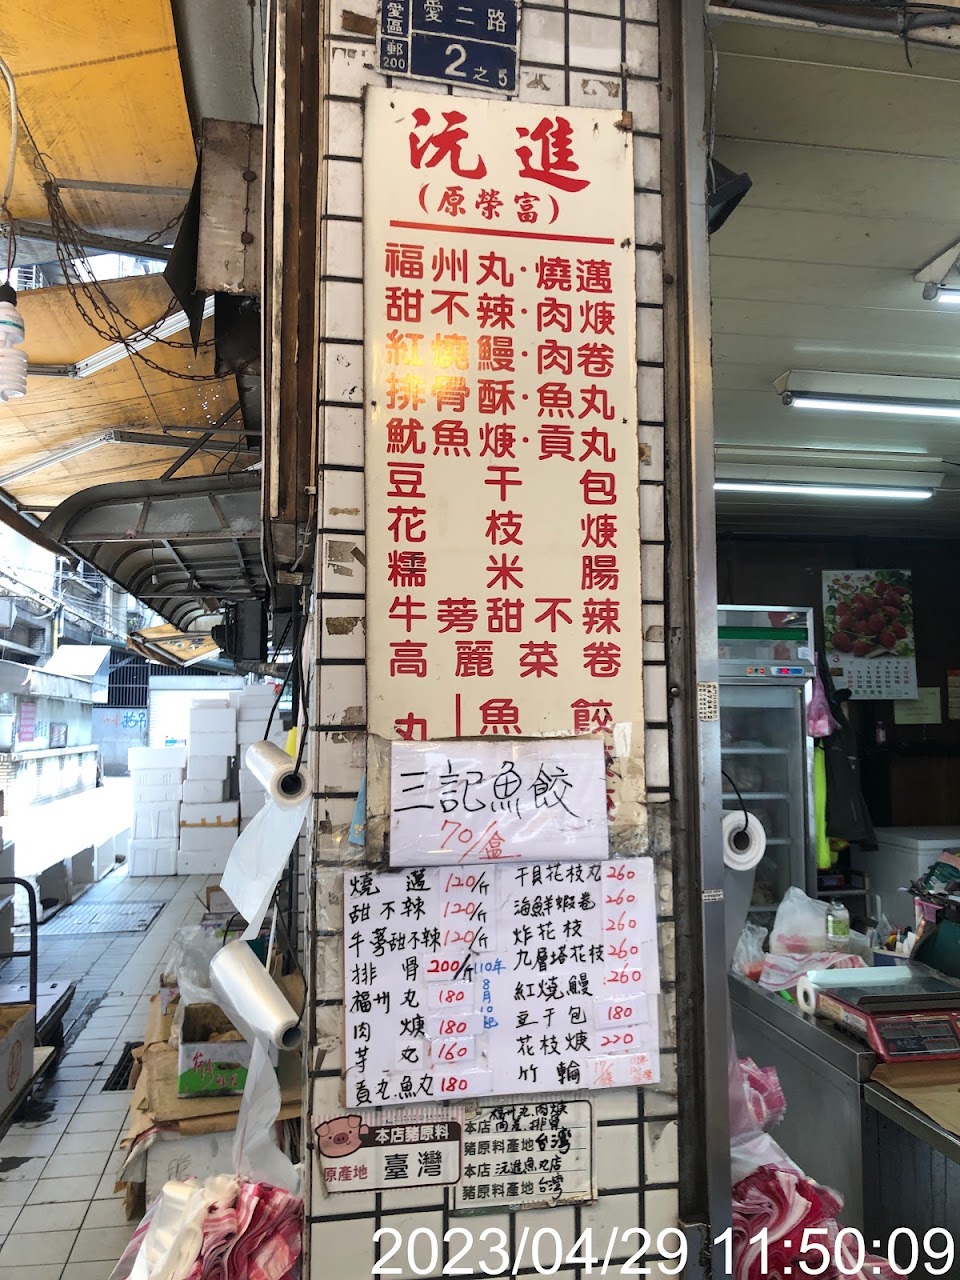 愛區
郵200
愛二路
2之5
沅進
(原榮富)
福州丸·燒邁
甜不辣·肉焿
紅燒鰻·肉卷
排骨酥·魚丸
魷魚焿·貢丸
豆干包
花枝焿
糯米腸
牛蒡甜不辣
高麗菜卷
丸 魚餃
三記魚餃
70/盒
燒邁 120/斤
甜不辣 120/斤
牛蒡甜不辣 120/斤
排骨 200/斤
110年8月10日起
福州丸 180
肉焿 180
芋丸 160
貢丸.魚丸 180
干貝花枝丸 260
海鮮蝦卷 260
炸花枝 260
九層塔花枝 260
紅燒鰻 260
豆干包 180
花枝焿 220
竹輪
本店豬原料
原產地 臺灣
福州丸.肉焿
本店肉羔.排骨
豬原料產地台灣
本店沅進魚丸店
豬原料產地台灣
2023/04/29 11:50:09